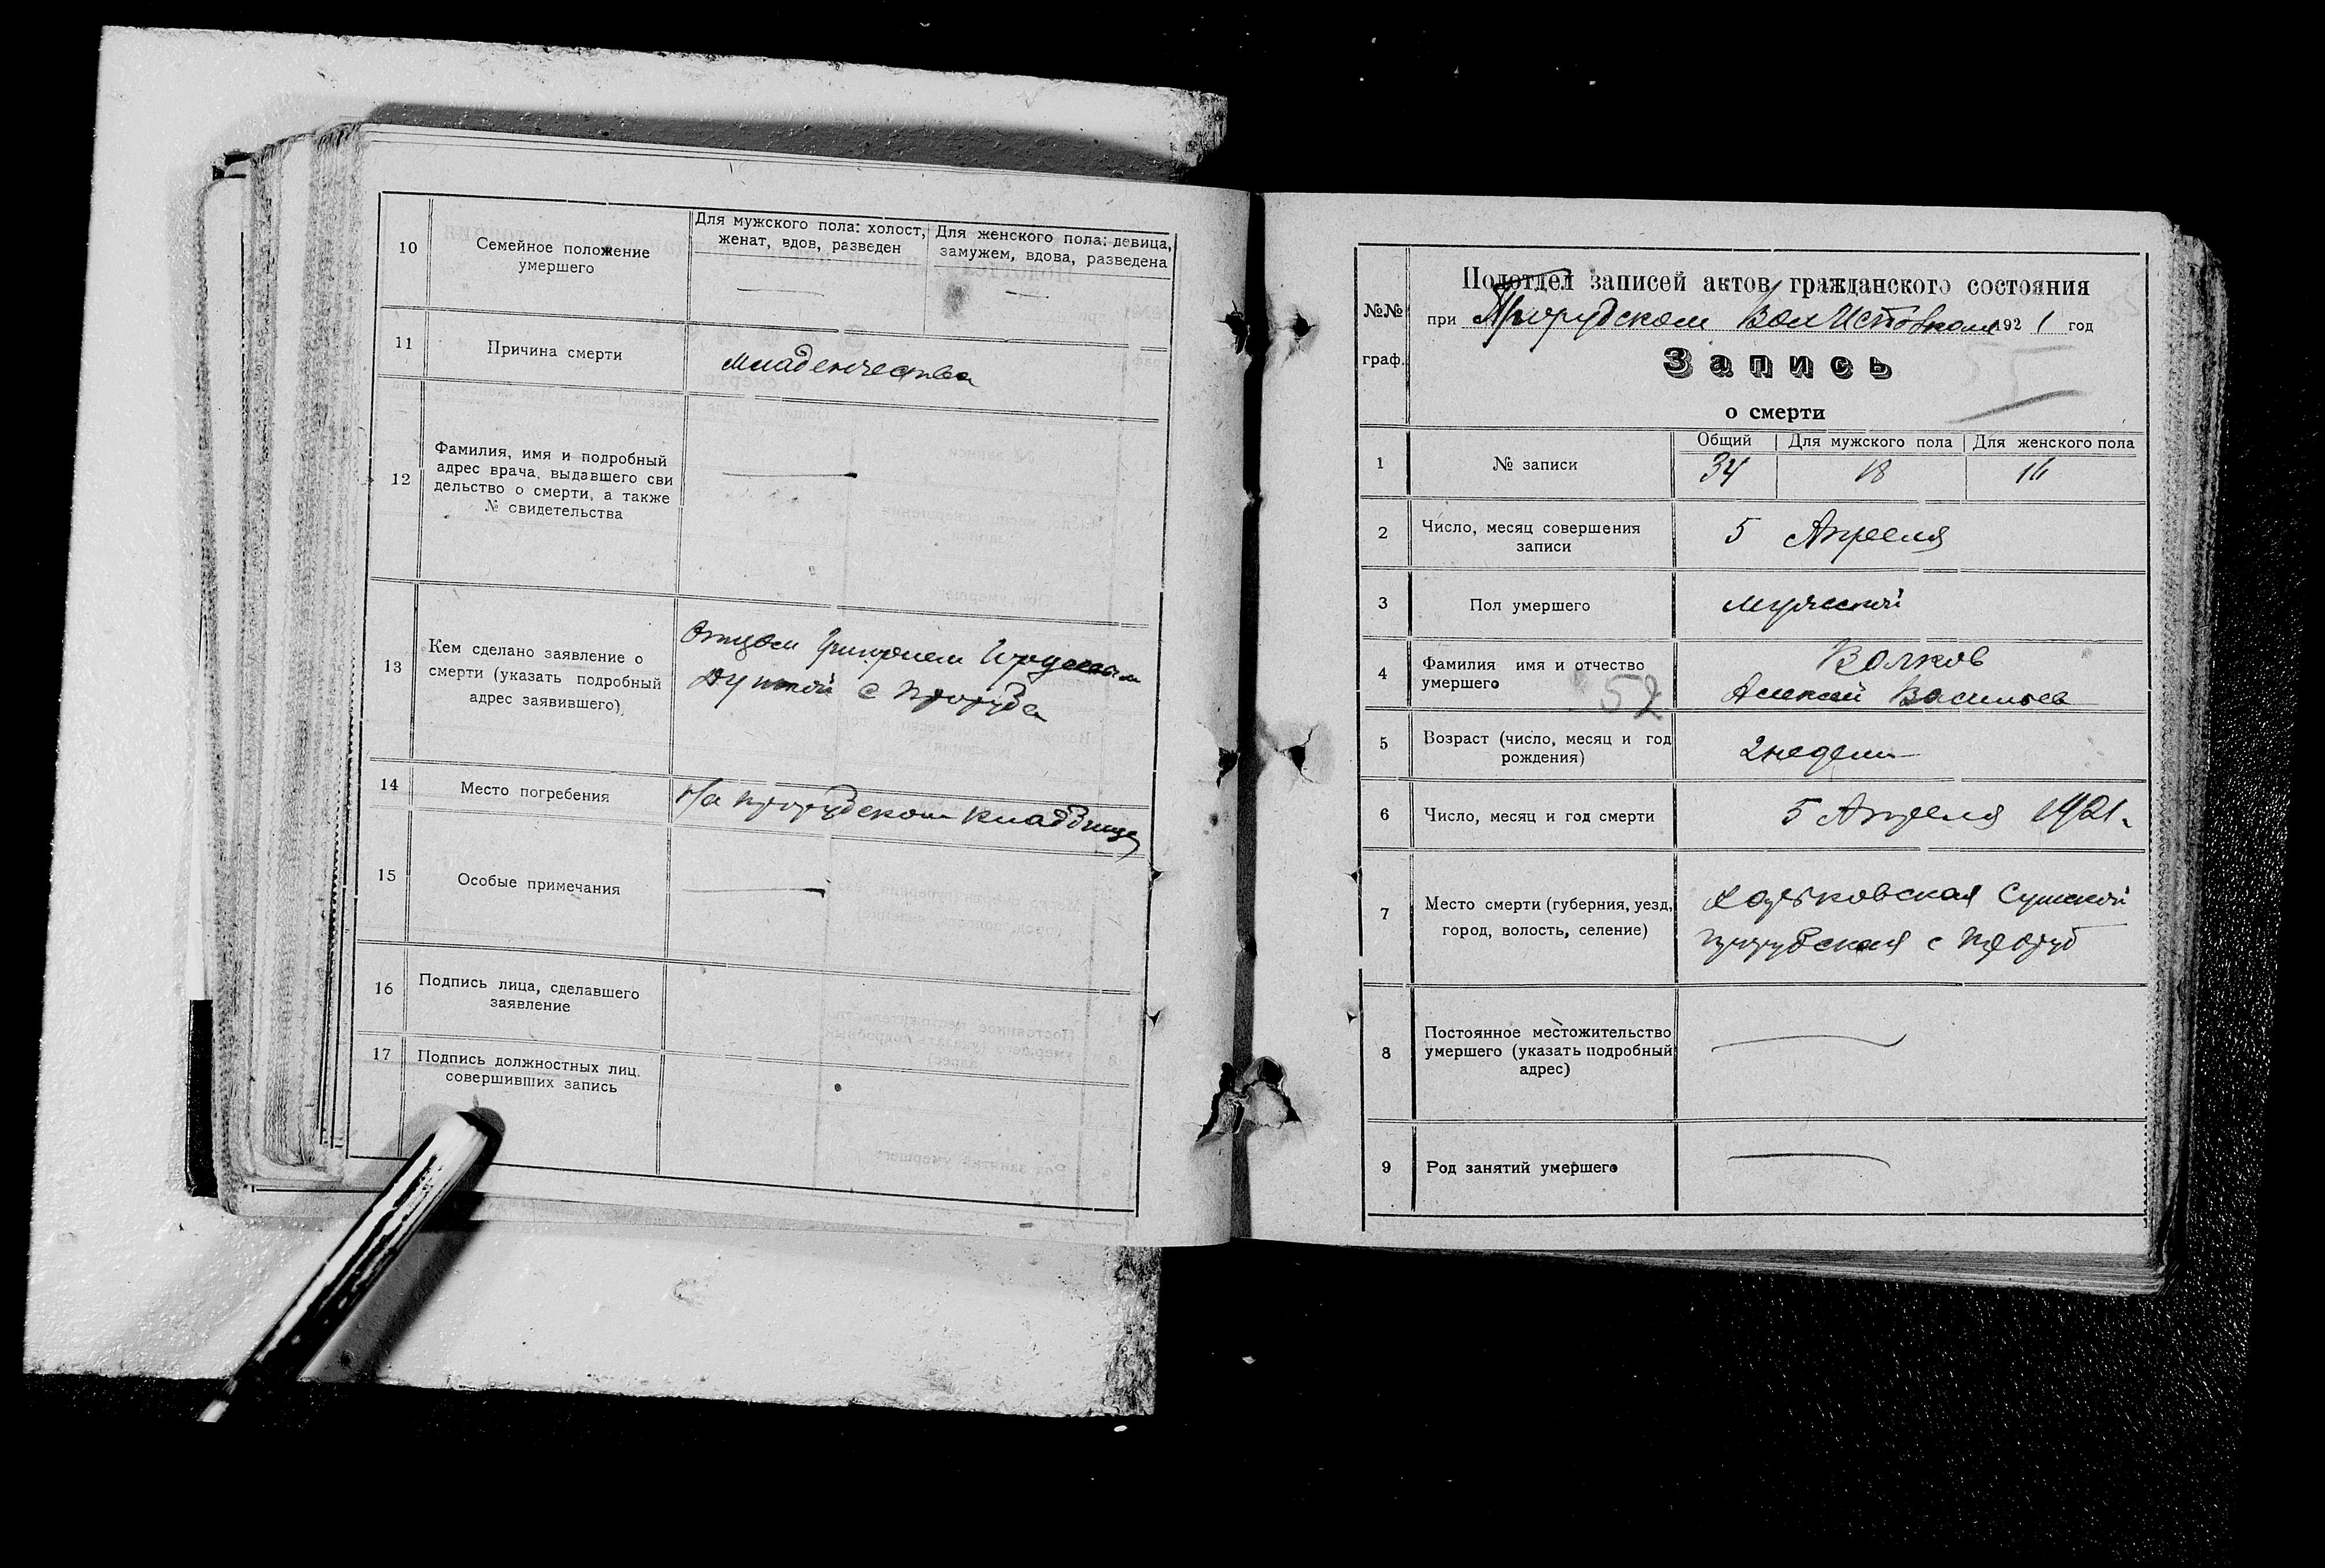 10
Семейное положение
умершего
Для мужского пола: холост,
женат, вдов, разведен
Для женского пола: девица,
замужем, вдова, разведена
11
Причина смерти
Младенчества
12
Фамилия, имя и подробный
адрес врача, выдавшего сви
дельство о смерти, а также
№ свидетельства
13
Кем сделано заявление о
смерти (указать подробный
адрес заявившего)
Отцом Григорием
с Проруба
14
Место погребения
На прорубском кладбище
15
Особые примечания
16
Подпись лица, сделавшего
заявление
17
Подпись должностных лиц.
совершивших запись
№№
граф.
Подотдел записей актов гражданского состояния
при Прорубском Волисполкоме 1921 год
Запись
55
о смерти
1
№ записи
Общий
Для мужского пола
Для женского пола
34
18
16
2
Число, месяц совершения
записи
5 Апреля
3
Пол умершего
мужской
4
Фамилия имя и отчество
умершего
52
Волков
Алексей Васильев
5
Возраст (число, месяц и год
рождения)
2 недели
6
Число, месяц и год смерти
5 Апреля 1921 г.
7
Место смерти (губерния, уезд,
город, волость, селение)
Харьковская Сумской
прорубская с Проруб
8
Постоянное местожительство
умершего (указать подробный
адрес)
9
Род занятий умершего